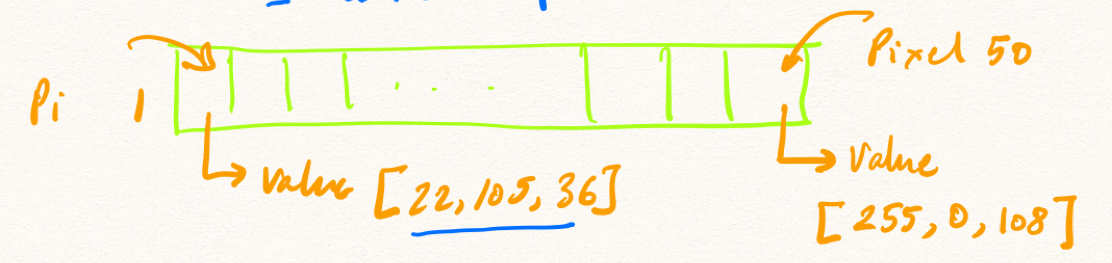 Pixel 50
Pi 1
value [22, 105, 36]
Value
[255, 0, 108]